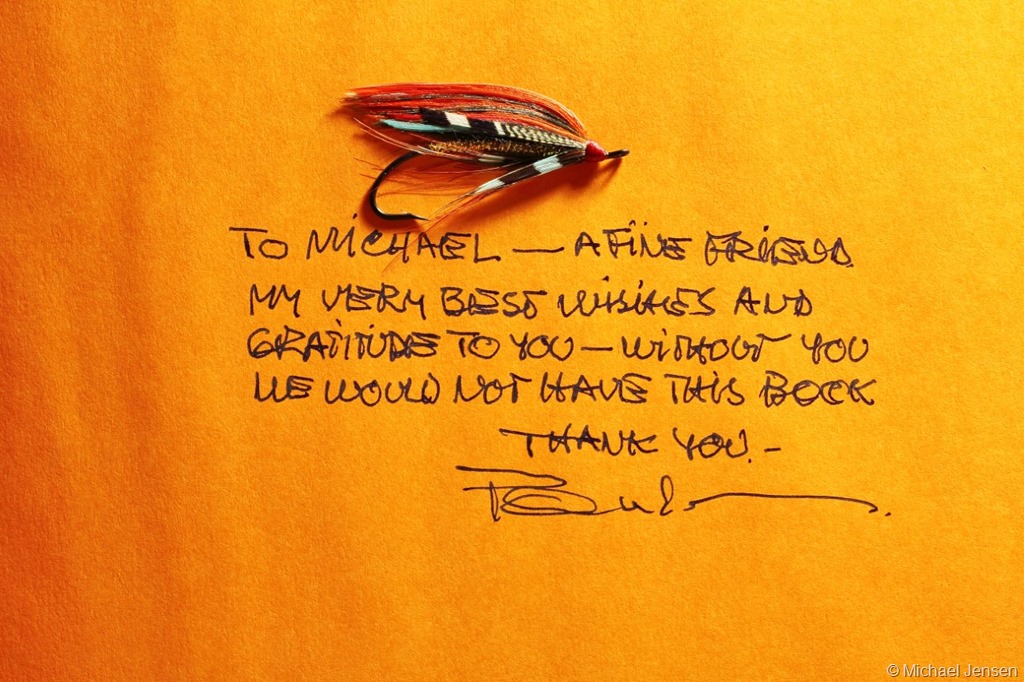 TO MICHAEL — A FINE FRIEND
MY VERY BEST WISHES AND
GRATITUDE TO YOU — WITHOUT YOU
WE WOULD NOT HAVE THIS BOOK
THANK YOU. –
© Michael Jensen